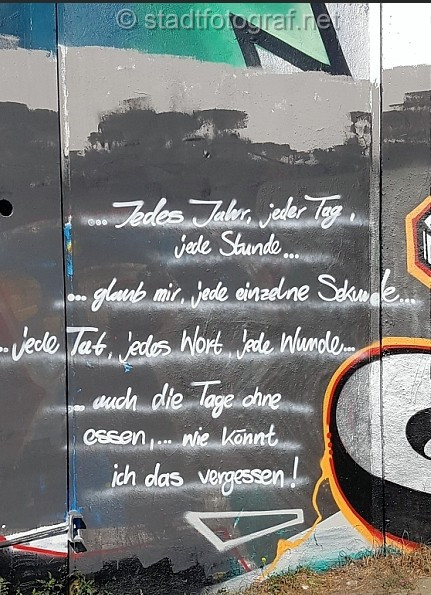 © stadtfotograf.net
... Jedes Jahr, jeder Tag,
jede Stunde...
... glaub mir, jede einzelne Sekunde...
... jede Tat, jedes Wort, jede Wunde...
... auch die Tage ohne
essen,... wie könnt
ich das vergessen!